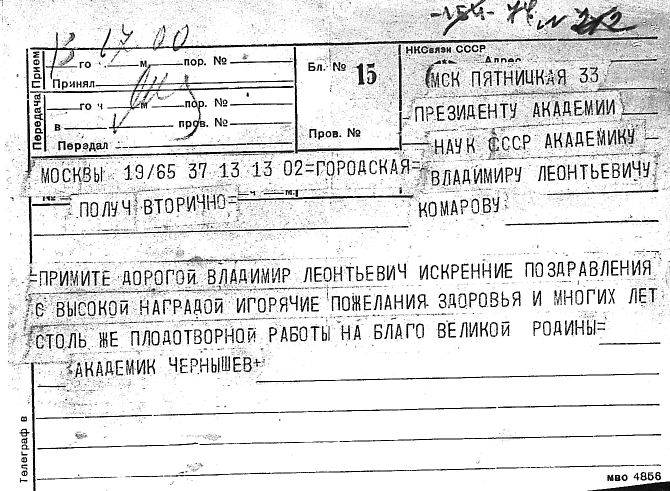 13 17 00
Прием
го м. пор. №
Принял
Передача
го ч м. пор. №
в пров. №
Передал
Бл. № 15
Пров. №
НКСвязи СССР
Адрес
МСК ПЯТНИЦКАЯ 33
ПРЕЗИДЕНТУ АКАДЕМИИ
НАУК СССР АКАДЕМИКУ
ВЛАДИМИРУ ЛЕОНТЬЕВИЧУ
КОМАРОВУ
МОСКВЫ 19/65 37 13 13 02=ГОРОДСКАЯ=
ч м.
ПОЛУЧ ВТОРИЧНО=
=ПРИМИТЕ ДОРОГОЙ ВЛАДИМИР ЛЕОНТЬЕВИЧ ИСКРЕННИЕ ПОЗДРАВЛЕНИЯ
С ВЫСОКОЙ НАГРАДОЙ ИГОРЯЧИЕ ПОЖЕЛАНИЯ ЗДОРОВЬЯ И МНОГИХ ЛЕТ
СТОЛЬ ЖЕ ПЛОДОТВОРНОЙ РАБОТЫ НА БЛАГО ВЕЛИКОЙ РОДИНЫ=
АКАДЕМИК ЧЕРНЫШЕВ+
Телеграф в
мво 4856